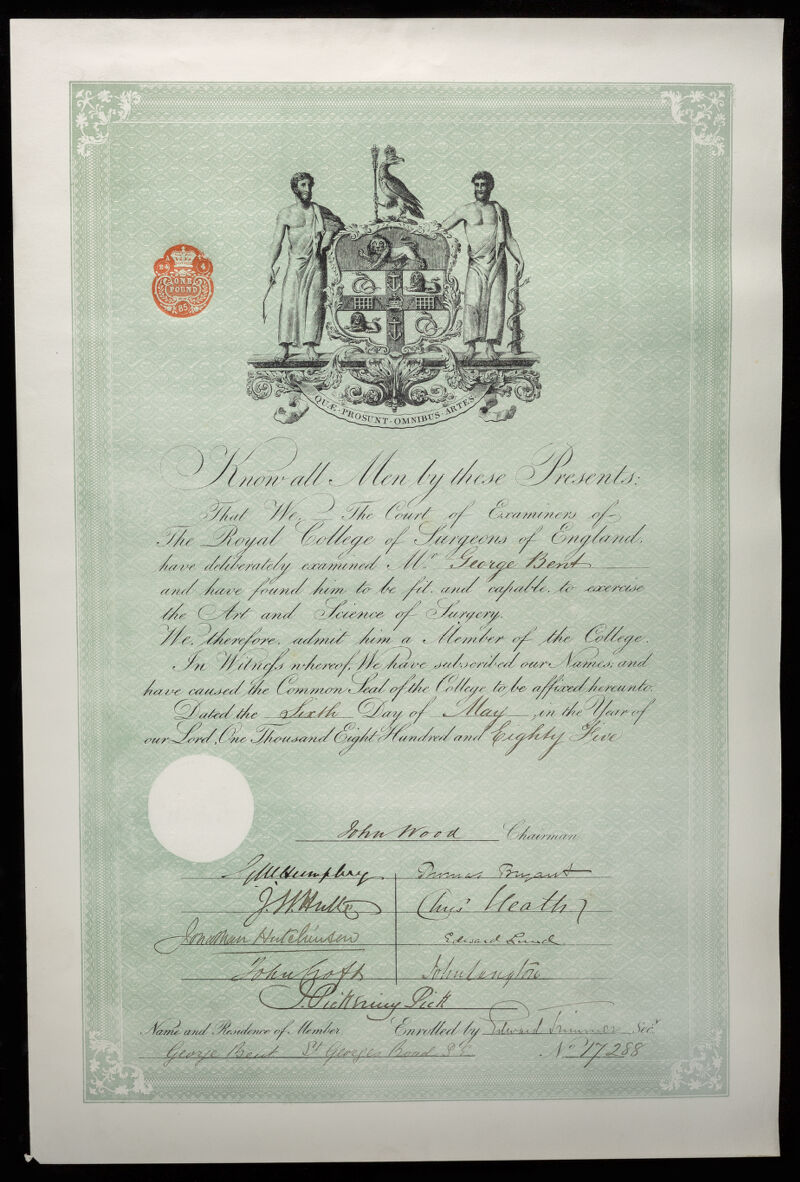 24 4
ONE
POUND
85
QUÆ·PROSUNT·OMNIBUS·ARTES
Know all Men by these Presents:
That We, The Court of Examiners of
The Royal College of Surgeons of England,
have deliberately examined Mr George Bent
and have found him to be fit and capable to exercise
the Art and Science of Surgery.
We, therefore, admit him a Member of the College.
In Witness whereof, We have subscribed our Names, and
have caused the Common Seal of the College to be affixed hereunto.
Dated the Sixth Day of May, in the Year of
our Lord, One Thousand Eight Hundred and Eighty Five
John Wood Chairman
G M Humphry Thomas Bryant
J. W. Hulke Chrisr Heath
Jonathan Hutchinson Edward Lund
John Croft John Langton
T. Pickering Pick
Name and Residence of Member Enrolled by Edward Trimmer Secy
George Bent St Georges Road S.E. No 17288